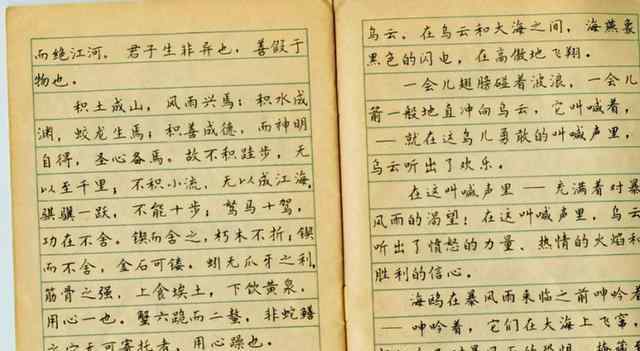 而绝江河，君子生非异也，善假于
物也。
积土成山，风雨兴焉；积水成
渊，蛟龙生焉；积善成德，而神明
自得，圣心备焉。故不积跬步，无
以至千里；不积小流，无以成江海。
骐骥一跃，不能十步；驽马十驾，
功在不舍。锲而舍之，朽木不折；锲
而不舍，金石可镂。蚓无爪牙之利，
筋骨之强，上食埃土，下饮黄泉，
用心一也。蟹六跪而二螯，非蛇鳝
之穴无可寄托者，用心躁也。
乌云，在乌云和大海之间，海燕象
黑色的闪电，在高傲地飞翔。
一会儿翅膀碰着波浪，一会儿
箭一般地直冲向乌云，它叫喊着，
— 就在这鸟儿勇敢的叫喊声里，
乌云听出了欢乐。
在这叫喊声里 — 充满着对暴
风雨的渴望！在这叫喊声里，乌云
听出了愤怒的力量、热情的火焰和
胜利的信心。
海鸥在暴风雨来临之前呻吟着
— 呻吟着，它们在大海上飞窜，